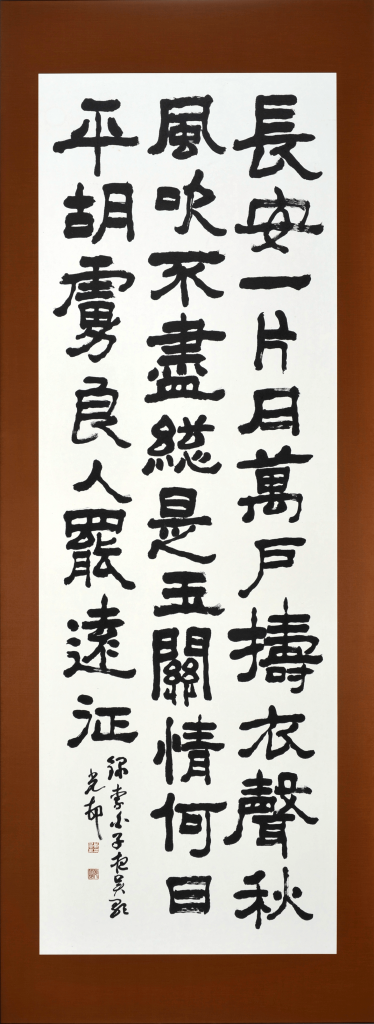 長安一片月萬戶擣衣聲秋
風吹不盡総是玉關情何日
平胡虜良人罷遠征
錄李白子夜吳歌
光